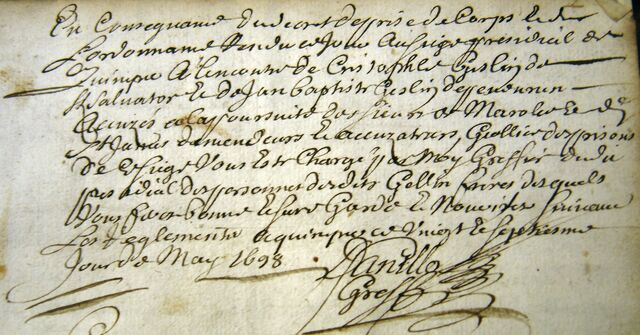 En Consequance du decret de prise de Corps Et de
Lordonnance Rendu ce Jour Au siege presidial de
Quimper A Lencontre de Cristophle Geslin de
St Salvator Et de Jan baptiste Geslin
Accuzés a la poursuitte des sieurs de Marolle Et de
St James demandeurs Et accuzateurs, Geollier des prisons
De ce siege Vous Este Chargé par Moy Greffier dudit
presidial des personnes desdits Geslin freres desquels
Vous ferez bonne Et sure Garde Et Nouriture suivant
Les Reglements a quimper ce Vingt Et Septiesme
Jour de May 1698
Greff